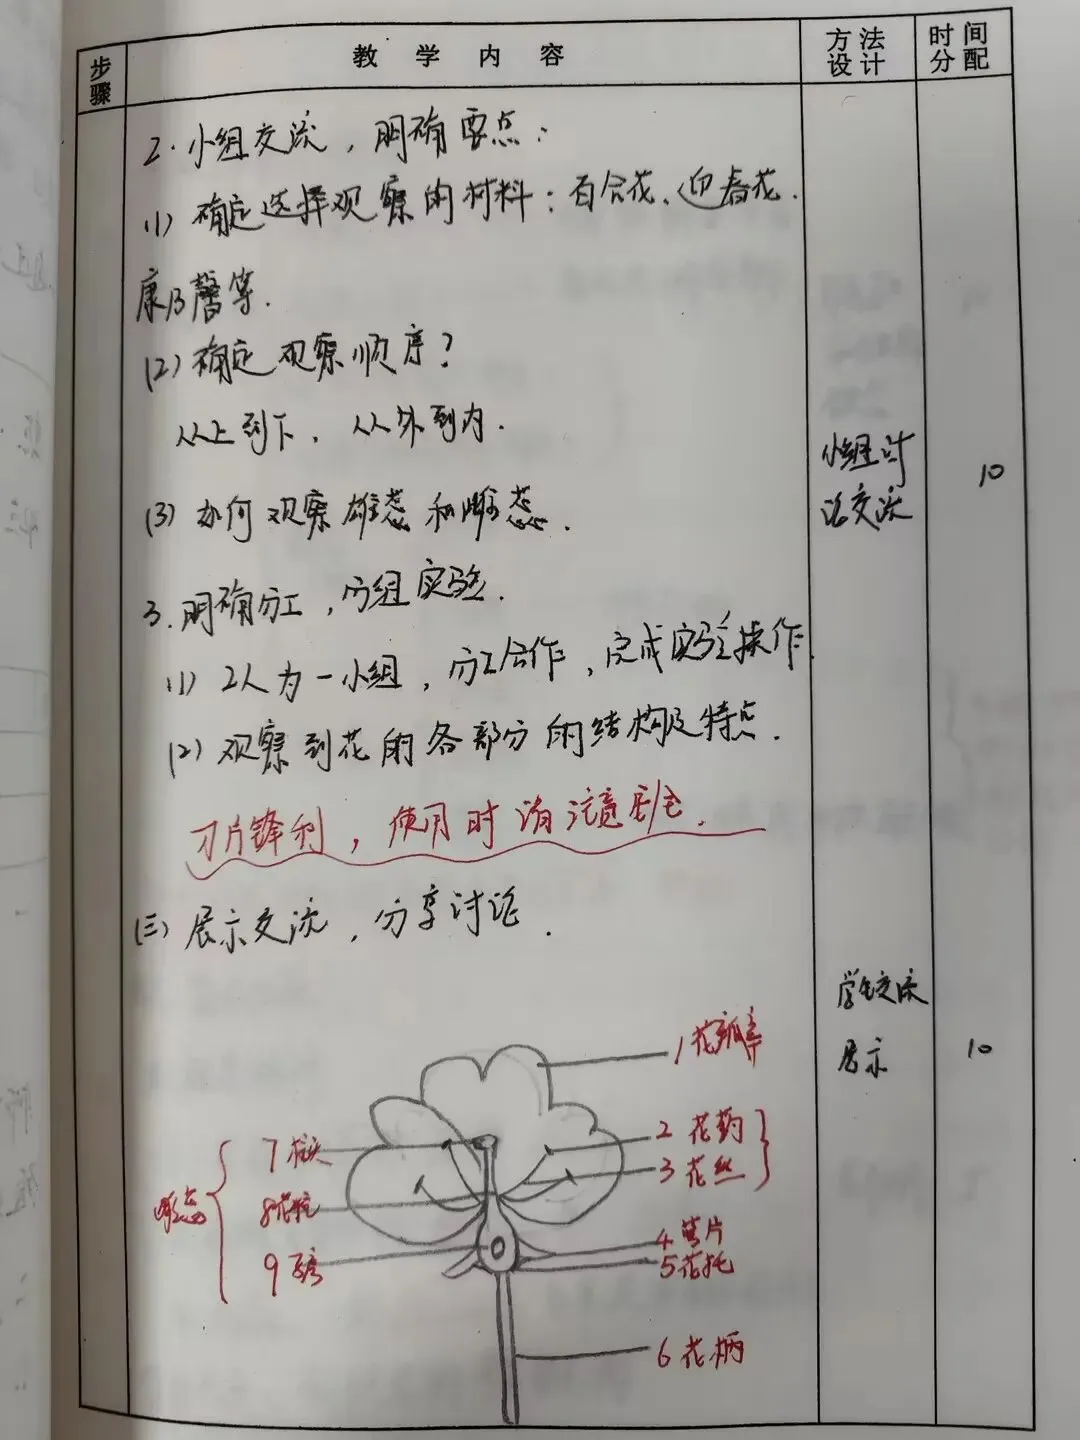 步骤 教学内容 方法设计 时间分配
2.小组交流，明确要点：
(1)确定选择观察的材料：百合花、迎春花.
康乃馨等.
(2)确定观察顺序？
从上到下.从外到内.
(3)如何观察雄蕊和雌蕊.
小组讨
论交流
10
3.明确分工，分组实验.
(1)2人为一小组，分工合作，完成实验操作.
(2)观察到花的各部分的结构及特点.
刀片锋利，使用时请注意安全.
(三)展示交流，分享讨论.
学生交流
展示
10
1花瓣
2花药
3花丝
4萼片
5花托
6花柄
7柱头
8花柱
9子房
雌蕊